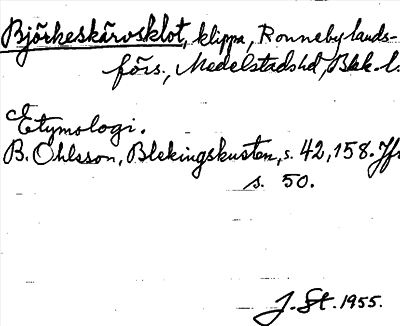 Björkeskärvsklot, klippa, Ronneby lands-
förs., Medelstadshd, Blek. l.
Etymologi.
B. Ohlsson, Blekingskusten, s. 42, 158. Jfr
s. 50.
J. St. 1955.